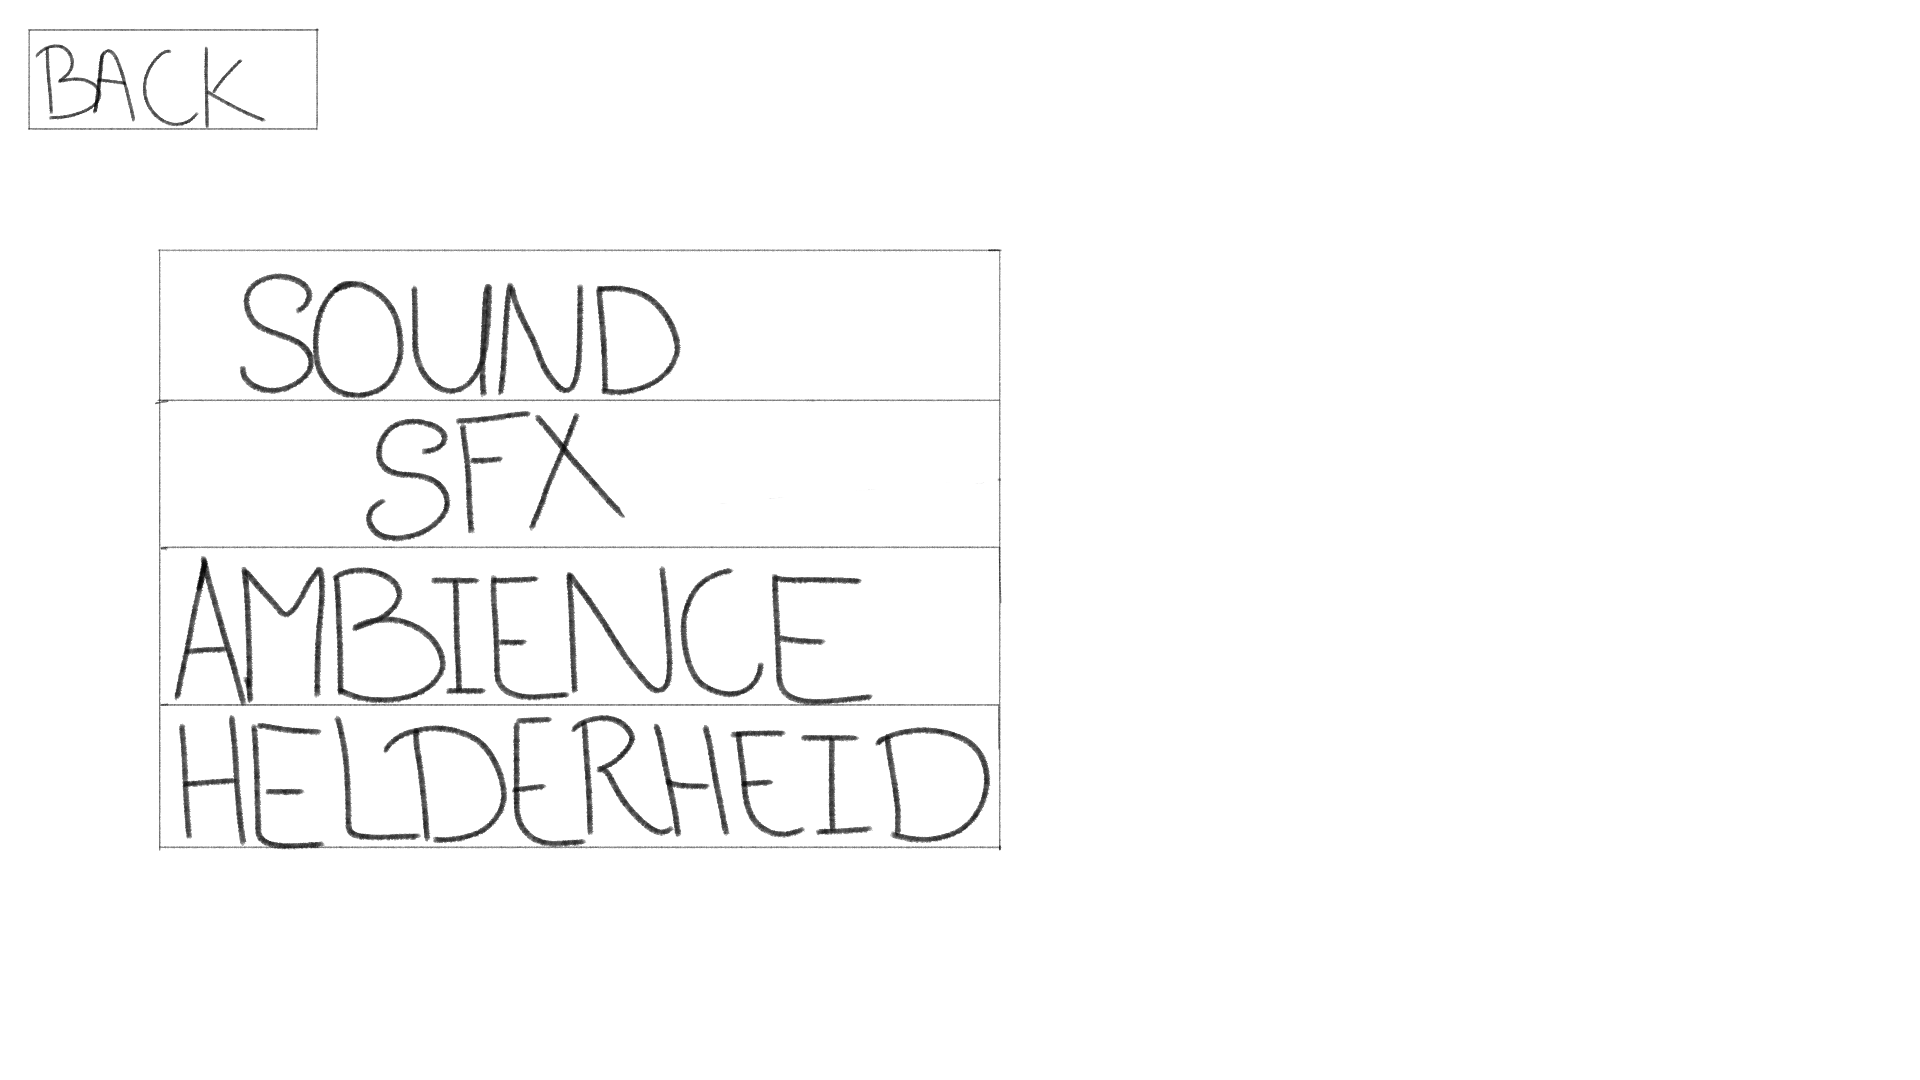 BACK
SOUND
SFX
AMBIENCE
HELDERHEID